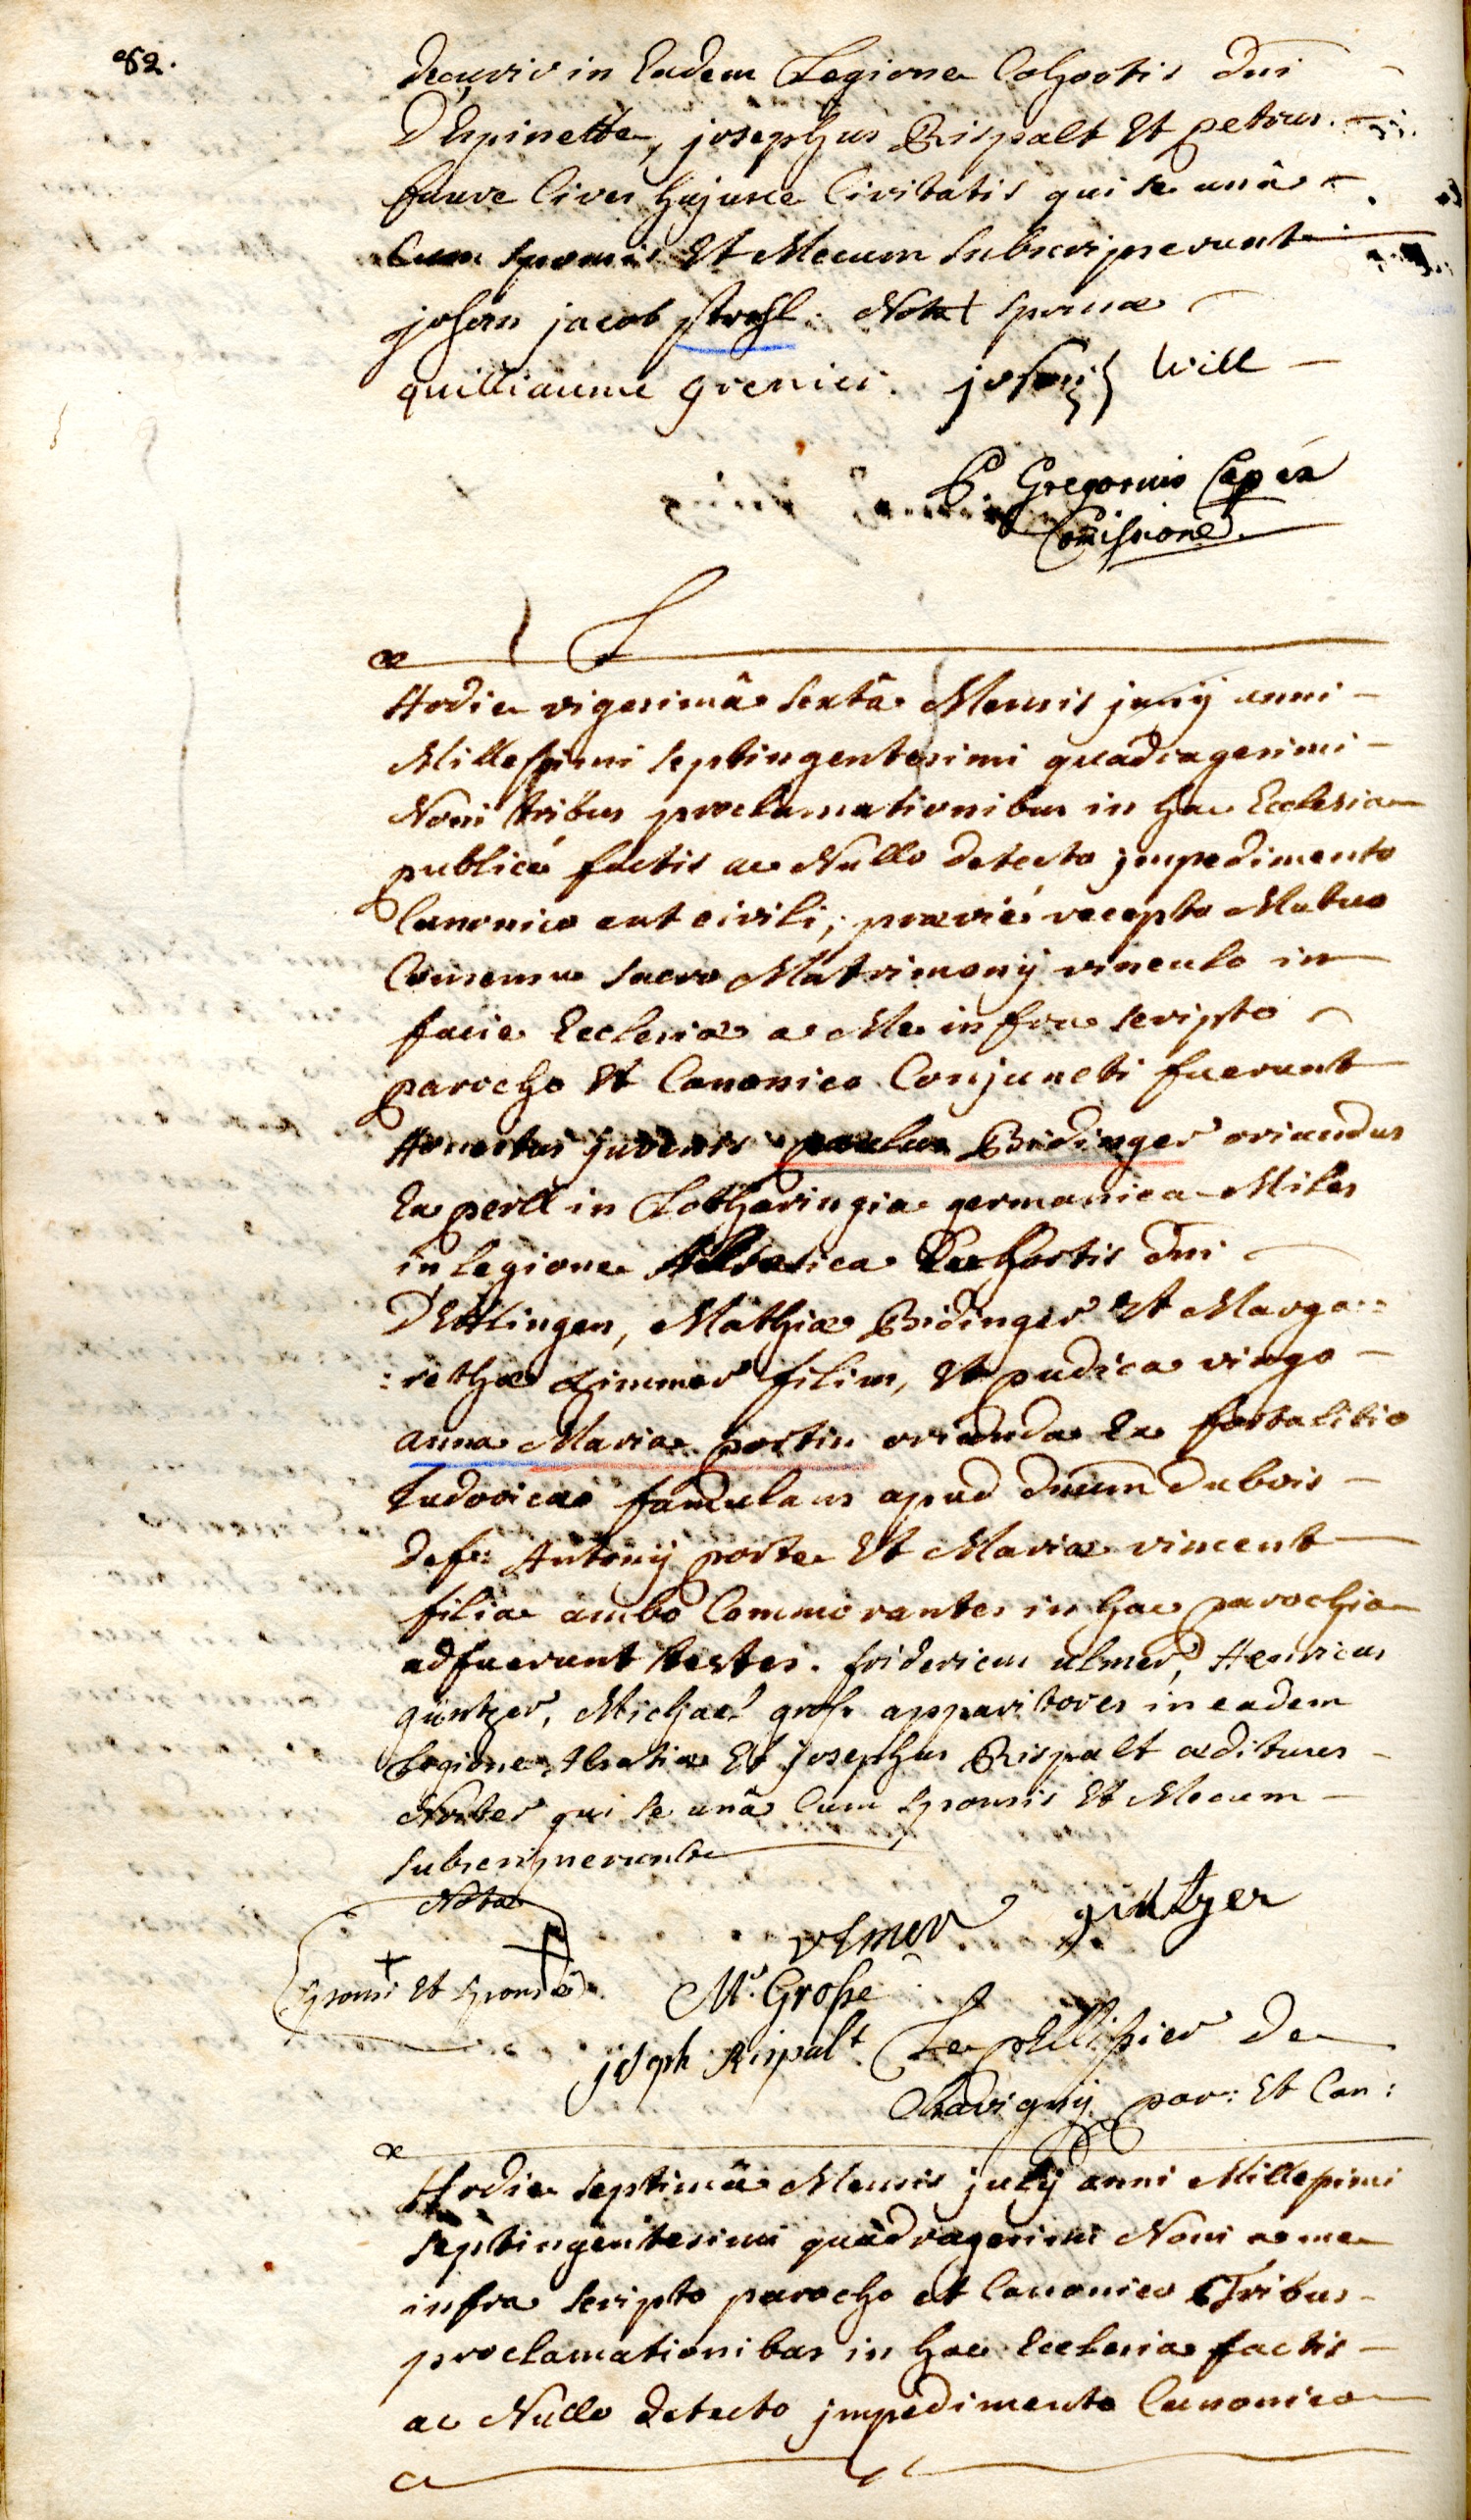 82.
decurio in Eadem Legione Cohortis Dni
D'Espinette, josephus Rispalt Et petrus
faure Cives hujusce Civitatis qui se unâ
Cum sponsis Et Mecum subscripserunt
johan jacob strohl. Nota + sponsæ
quilliaume grenier. johan Will
P. Gregorius Cap ex
Com̄issione
Hodie vigesimâ sextâ Mensis junij anni
Millesimi septingentesimi quadragesimi
Noni tribus proclamationibus in hac Ecclesia
publicé factis ac Nullo detecto jmpedimento
Canonico aut civili, prævié recepto Mutuo
Consensu sacro Matrimonij vinculo in
facie Ecclesiæ a Me infra scripto
parocho Et Canonico Conjuncti fuerunt
Honestus juvenis paulus Bidinger oriundus
Ex perll in Lotharingia germanica Miles
in Legione Alsatica Cohortis Dni
D'Ettlingen, Mathiæ Bidinger Et Marga=
=rethæ Zimmer filius, Et pudica virgo
anna Maria portin oriunda Ex fortalitio
Ludovico famulans apud Dnum dubois
def: Antonij porte Et Mariæ vincent
filia ambo Commorantes in hac parochia
adfuerunt testes. fridericus ulmer, Henricus
güntzer, Michael grosse apparitores in eadem
Legione Alsatiæ Et josephus Rispalt ædituus
Noster qui se unâ Cum sponsis Et Mecum
subscripserunt
Nota
+ +
sponsi Et sponsæ
vlmer güntzer
M. Grosse
joseph Rispalt Le pellissier de
Chavigny par: Et Can:
Hodie septimâ Mensis julij anni Millesimi
septingentesimi quadragesimi Noni a me
infra scripto parocho et Canonico Tribus
proclamationibus in hac Ecclesia factis
ac Nullo detecto jmpedimento Canonico